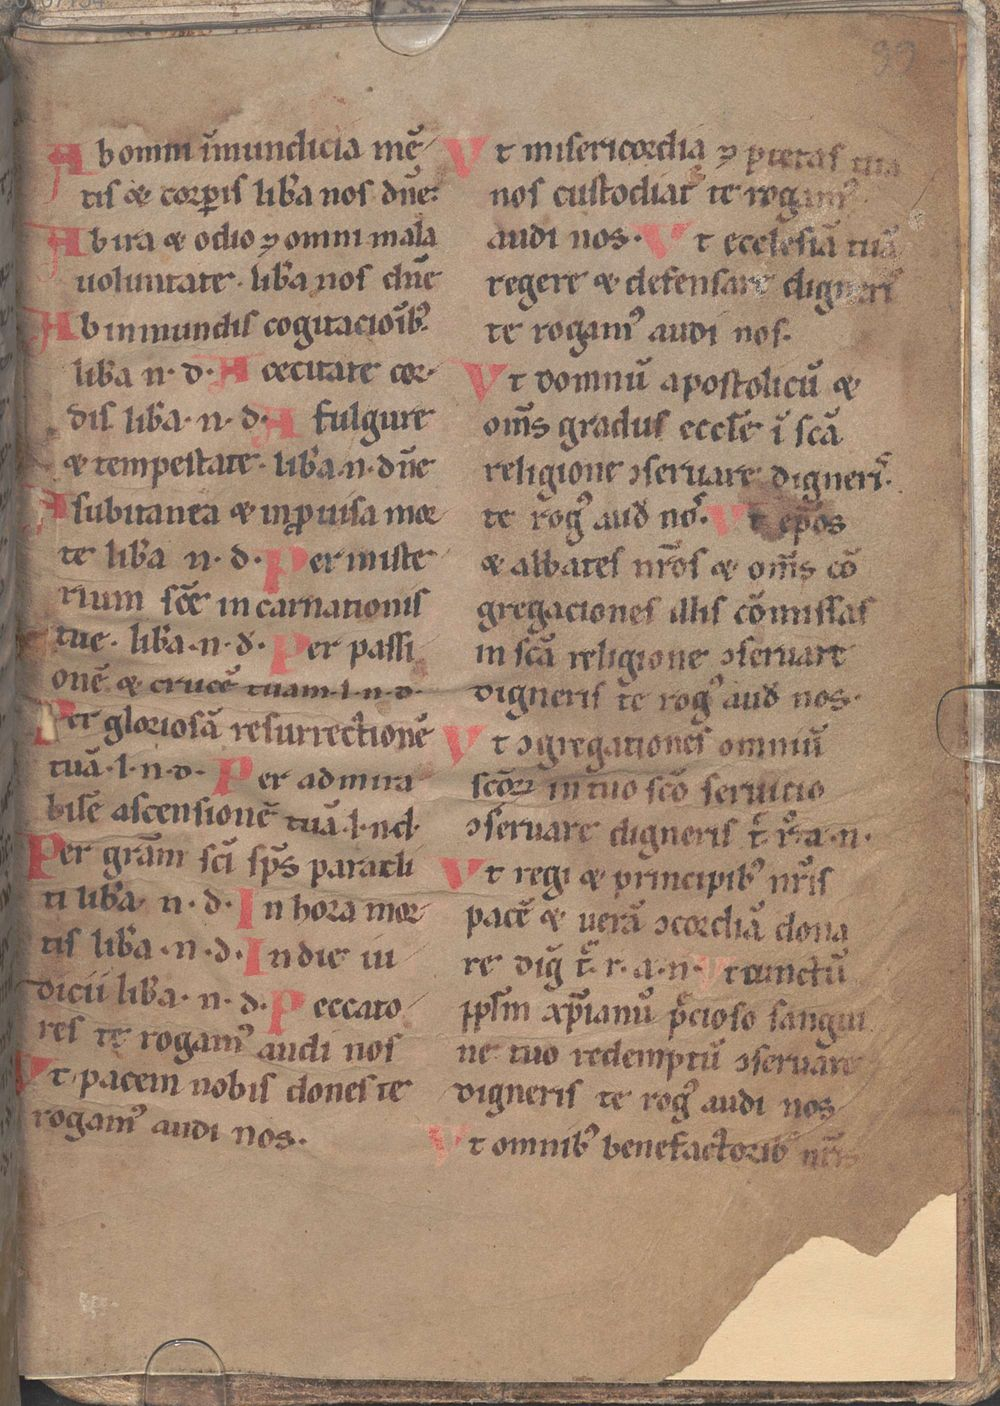 99
Ab omni īmundicia mē
tis ⁊ corꝑis lib̄a nos dn̄e:
Ab ira ⁊ odio ⁊ omni mala
uoluntate · lib̄a nos dn̄e
Ab inmundis cogitacioīb᷒
lib̄a n· d· A cecitate cor-
dis lib̄a· n· d· A fulgure
⁊ tempestate· lib̄a·n·dn̄e
A subitanea ⁊ inꝓuisa mor
te lib̄a n· d· Per miste
rium sc̄e incarnationis
tue· lib̄a·n·d· Per passi
onē ⁊ crucē tuam·l·n·d·
Per gloriosā resurrectionē
tuā·l·n·d· Per admira
bilē ascensionē tuā·l·n·d·
Per gr̄am sc̄i sp̄s paracli
ti lib̄a· n·d· In hora mor
tis lib̄a·n·d· In die iu
dicii lib̄a· n· d· Peccato
res te rogam᷒ audi nos
Vt pacem nobis dones te
rogam᷒ audi nos·
Vt misericordia ⁊ pietas tua
nos custodiat te rogam᷒
audi nos· Vt ecclesiā tuā
regere ⁊ defensare digneris
te rogam᷒ audi nos·
Vt domnū apostolicū ⁊
om̄s gradus eccl̄e ī sc̄a
religione ↄseruare digneris·
te rog᷒ aud̄ nos· Vt ep̄os
⁊ abbates nr̄os ⁊ om̄s cō
gregaciones illis cōmissas
in sc̄a religione ↄseruare
digneris te rog᷒ aud̄ nos·
Vt ↄgregationes omniū
sc̄oꝝ in tuo sc̄o seruicio
ↄseruare digneris t̄ r̄·a·n·
Vt regi ⁊ principib᷒ nr̄is
pacē ⁊ uerā ↄcordiā dona
re diḡ t̄ r·a·n· Vt cunctū
pp̄l̄m xp̄ianū p̄cioso sangui
ne tuo redemptū ↄseruare
digneris te rog᷒ audi nos
Vt omnib᷒ benefactorib᷒ nr̄is